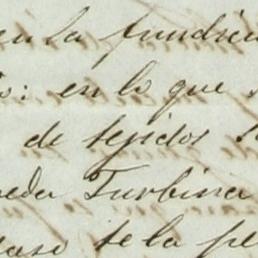 en la fundici
: en lo que
de tejidos
eda Turbina
se la pe